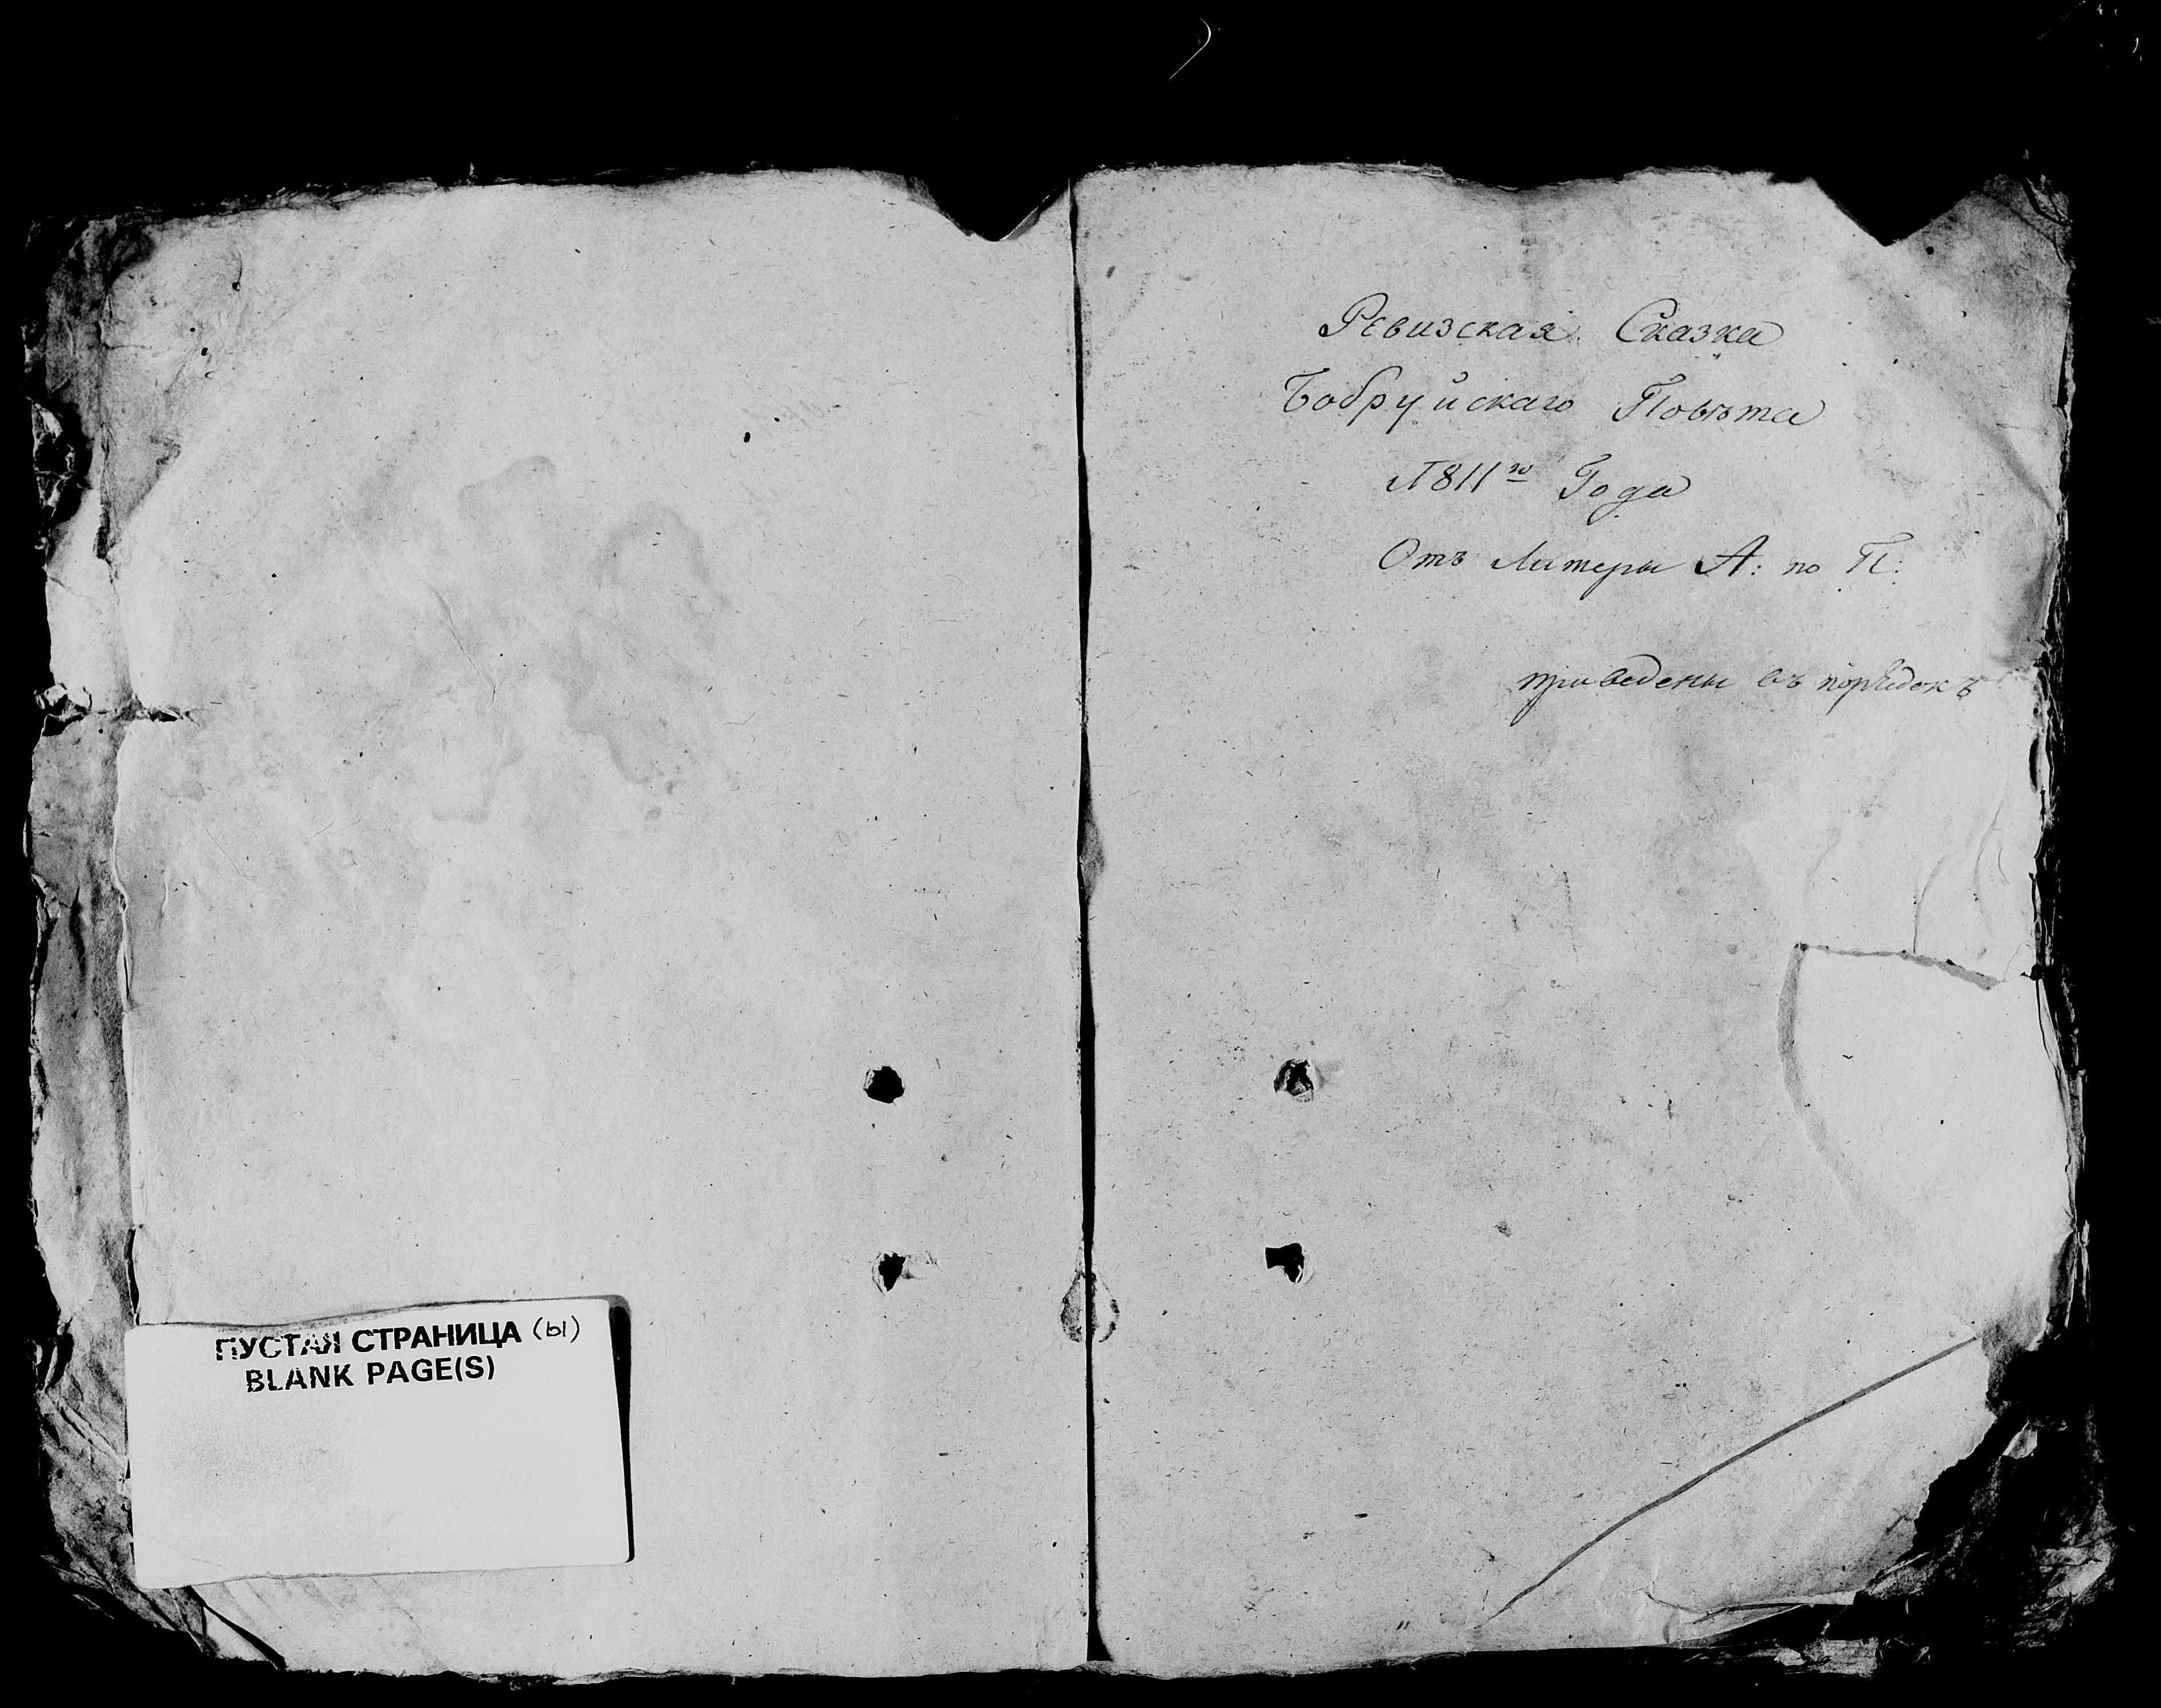 Ревизская Сказка
Бобруйскаго Повѣта
1811го Года
Отъ Литеры А: по П:
приведены въ порядокъ
ПУСТАЯ СТРАНИЦА (Ы)
BLANK PAGE(S)